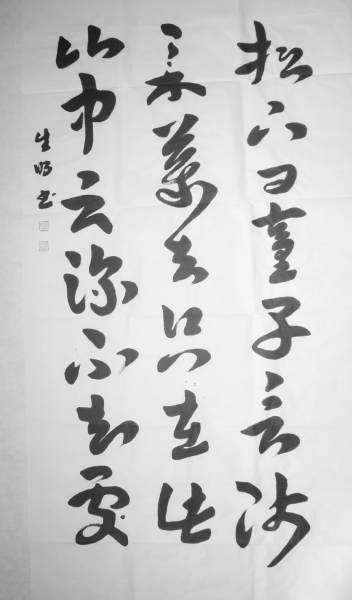 松下问童子言师
采藥去只在此
山中云深不知處
生明书